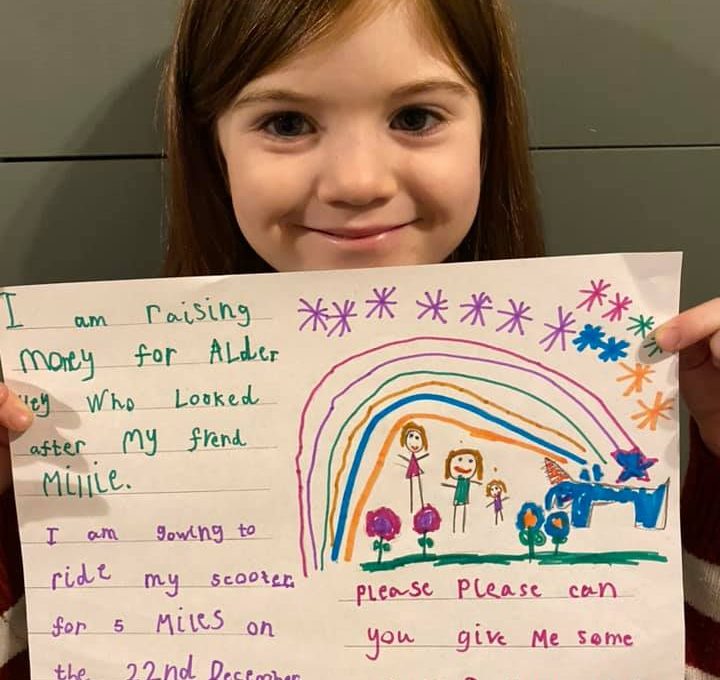 I am raising
money for ALder
Hey Who Looked
after my frend
Millie.
I am gowing to
ride my scooter
for 5 Miles on
the 22nd December
please please can
you give Me some